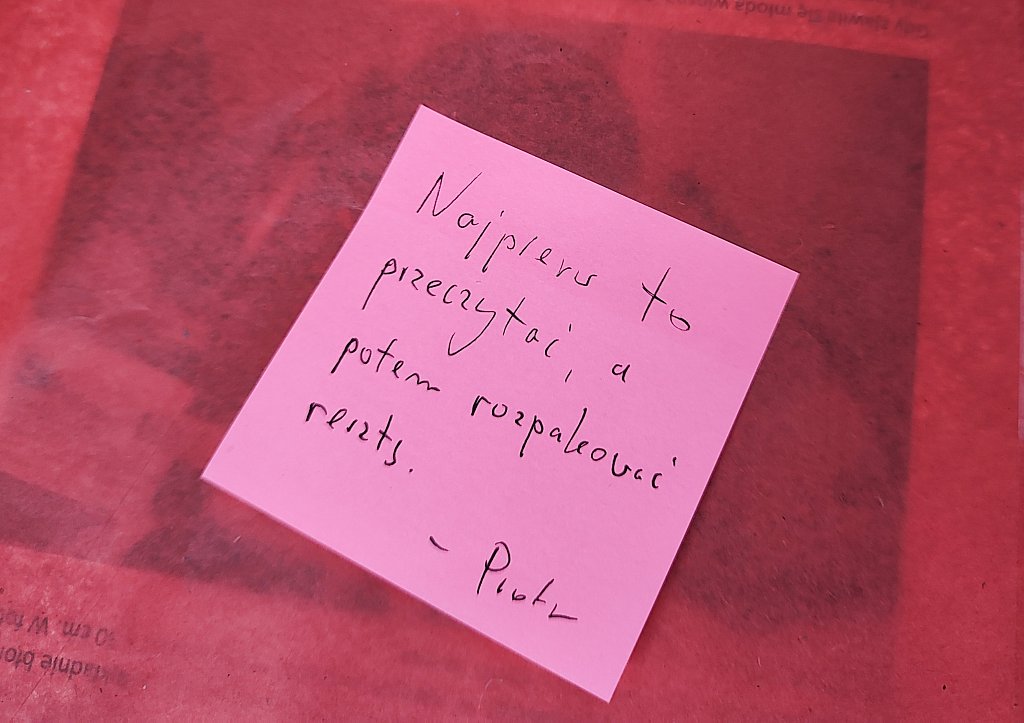 Najpierw to
przeczytać, a
potem rozpakować
resztę.
- Piotr